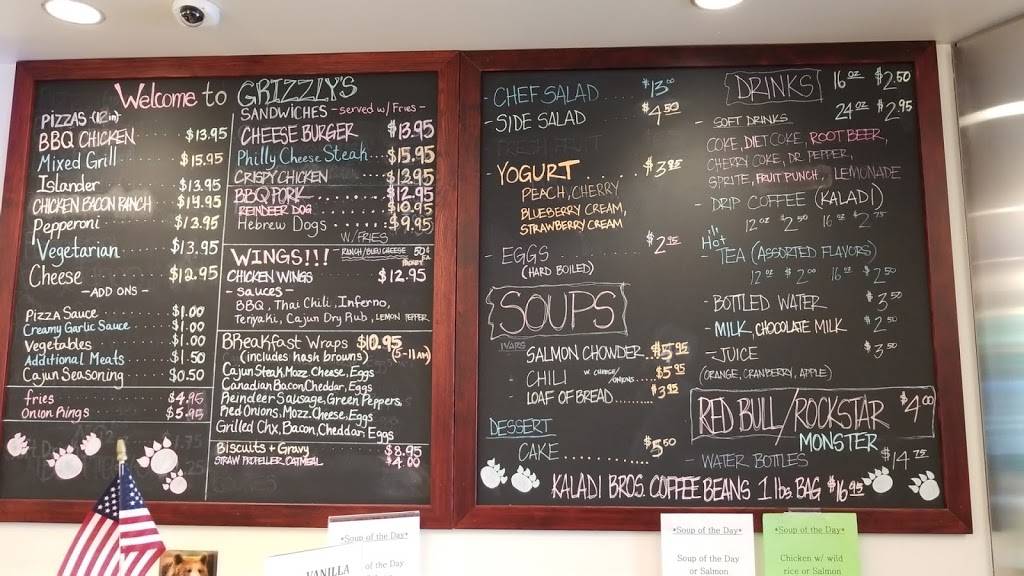 Welcome to GRIZZLY'S
PIZZAS (12 in)
BBQ CHICKEN $13.95
Mixed Grill $15.95
Islander $13.95
CHICKEN BACON RANCH $14.95
Pepperoni $13.95
Vegetarian $13.95
Cheese $12.95
- ADD ONS -
Pizza Sauce $1.00
Creamy Garlic Sauce $1.00
Vegetables $1.00
Additional Meats $1.50
Cajun Seasoning $0.50
fries $4.95
Onion Rings $5.95
SANDWICHES - served w/ Fries -
CHEESE BURGER $13.95
Philly Cheese Steak $15.95
CRISPY CHICKEN $13.95
BBQ PORK $12.95
REINDEER DOG
Hebrew Dogs $9.95
W/ FRIES
WINGS!!! RANCH/BLEU CHEESE 50¢
CHICKEN WINGS $12.95
- sauces -
BBQ, Thai Chili, Inferno,
Teriyaki, Cajun Dry Rub, LEMON PEPPER
BReakfast Wraps $10.95
(includes hash browns) (5-11 AM)
Cajun Steak, Mozz Cheese, Eggs
Canadian Bacon, Cheddar, Eggs
Reindeer Sausage, Green Peppers,
Red Onions, Mozz. Cheese, Eggs
Grilled Chx, Bacon, Cheddar, Eggs
Biscuits + Gravy $8.95
STRAW PROPELLER OATMEAL $4.00
- CHEF SALAD $13.00
- SIDE SALAD $4.50
FRESH FRUIT
- YOGURT $3.85
PEACH, CHERRY
BLUEBERRY CREAM,
STRAWBERRY CREAM
- EGGS $2.95
(HARD BOILED)
SOUPS
IVARS
SALMON CHOWDER $5.95
- CHILI W/ CHEESE/ONIONS $5.95
- LOAF OF BREAD $3.95
DESSERT
CAKE $5.50
DRINKS 16 oz $2.50
24 oz $2.95
- SOFT DRINKS
COKE, DIET COKE, ROOT BEER,
CHERRY COKE, DR. PEPPER,
SPRITE, FRUIT PUNCH, LEMONADE
- DRIP COFFEE (KALADI)
12 oz $2.50 16 oz $2.75
Hot
- TEA (ASSORTED FLAVORS)
12 oz $2.00 16 oz $2.50
- BOTTLED WATER $3.50
- MILK, CHOCOLATE MILK $2.50
- JUICE $3.50
(ORANGE, CRANBERRY, APPLE)
RED BULL/ROCKSTAR $4.00
MONSTER
- WATER BOTTLES $14.75
KALADI BROS. COFFEE BEANS 1 lbs BAG $16.95
*Soup of the Day*
of the Day
VANILLA
*Soup of the Day*
Soup of the Day
or Salmon
*Soup of the Day*
Chicken w/ wild
rice or Salmon